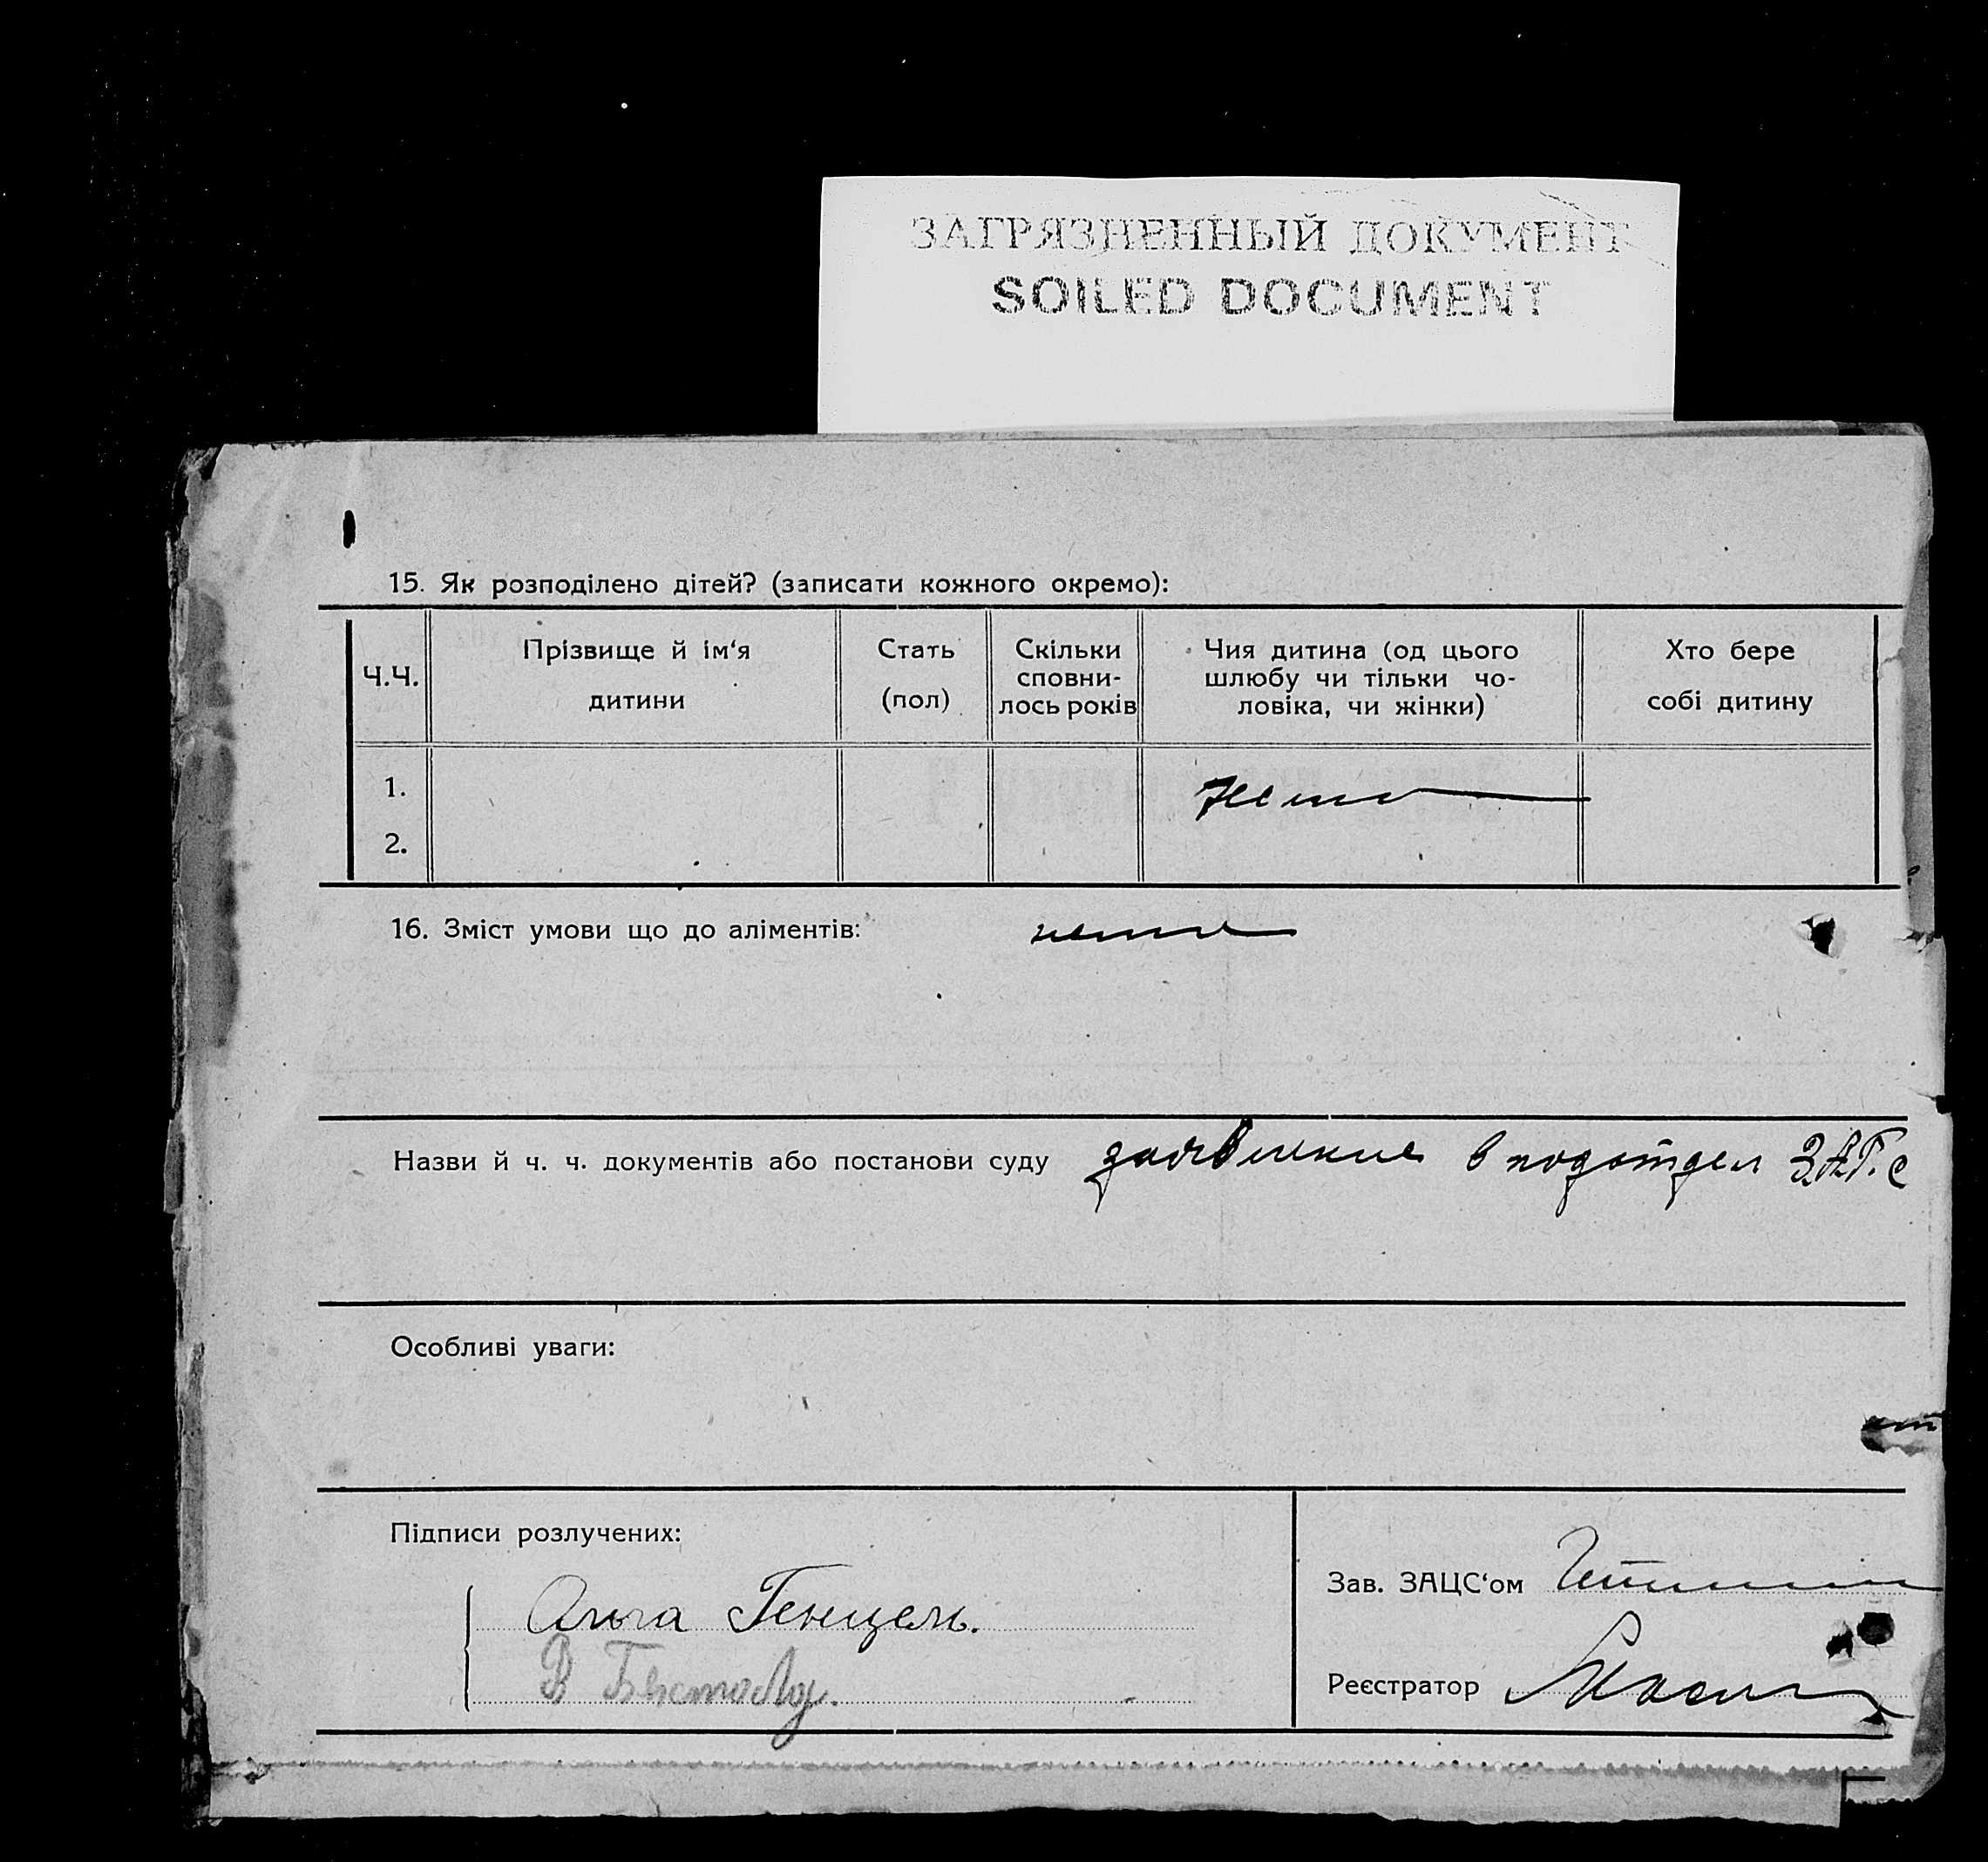 ЗАГРЯЗНЕННЫЙ ДОКУМЕНТ
SOILED DOCUMENT
15. Як розподілено дітей? (записати кожного окремо):
Ч.Ч.
Прізвище й ім‘я
дитини
Стать
(пол)
Скільки
сповни-
лось років
Чия дитина (од цього
шлюбу чи тільки чо-
ловіка, чи жінки)
Хто бере
собі дитину
1.
2.
16. Зміст умови що до аліментів:
Назви й ч. ч. документів або постанови суду заявление в подотдел ЗАГС
Особливі уваги:
Підписи розлучених:
Ольга Генцель.
В
Зав. ЗАЦС‘ом
Реєстратор